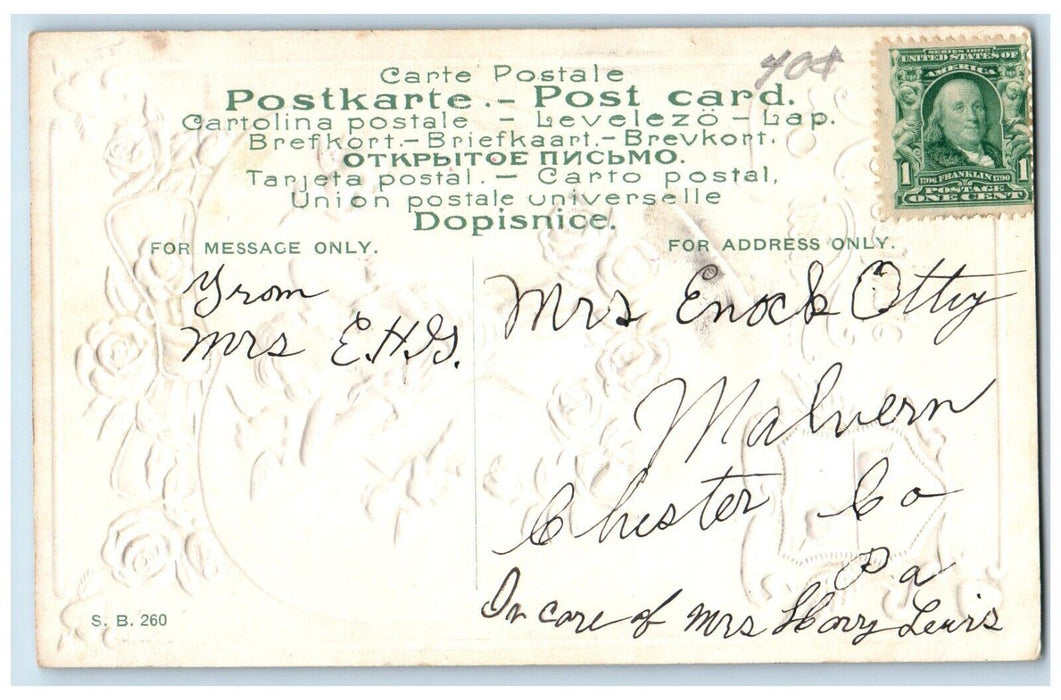 40¢
SERIES 1902
UNITED STATES OF
AMERICA
1 1
FRANKLIN
POSTAGE
ONE CENT
Carte Postale
Postkarte. – Post card.
Cartolina postale – Levelezö – Lap.
Brefkort. – Briefkaart. – Brevkort.
ОТКРЫТОЕ ПИСЬМО.
Tarjeta postal. – Carto postal,
Union postale universelle
Dopisnice.
FOR MESSAGE ONLY.
From
Mrs E.H.G.
FOR ADDRESS ONLY.
Mrs Enock Ottey
Malvern
Chester Co
Pa
In care of Mrs Harry Lewis
S. B. 260